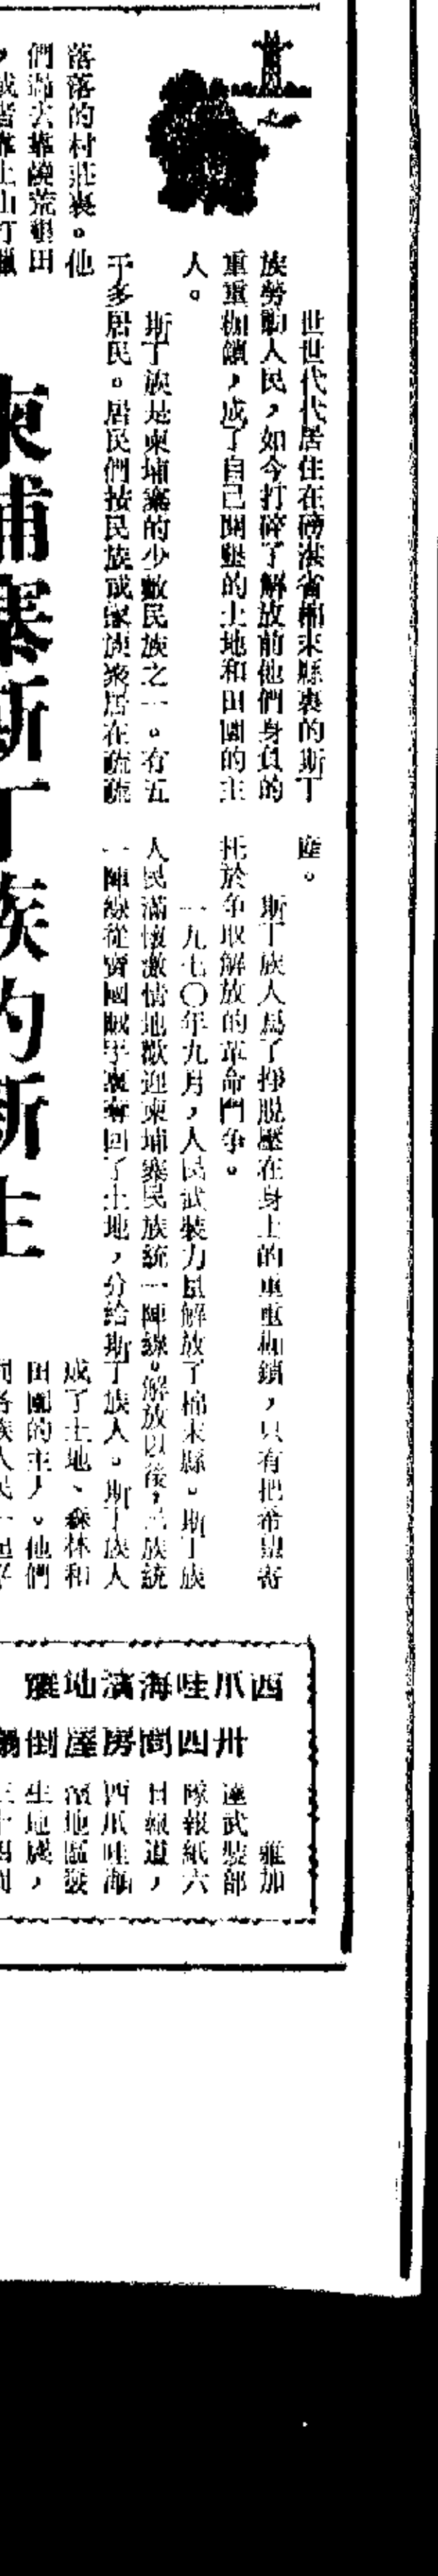 柬埔寨斯丁族的新生
世世代代居住在磅湛省棉末縣裏的斯丁
族勞動人民，如今打碎了解放前他們身負的
重重枷鎖，成了自己開墾的土地和田園的主
人。
斯丁族是柬埔寨的少數民族之一。有五
千多居民。居民們按民族或家族聚居在疏疏
落落的村莊裏。他
們過去靠燒荒墾田
，或者靠上山打獵
產。
斯丁族人爲了掙脫壓在身上的重重枷鎖，只有把希望寄
托於爭取解放的革命鬥爭。
一九七〇年九月，人民武裝力量解放了棉末縣。斯丁族
人民滿懷激情地歡迎柬埔寨民族統一陣線。解放以後，民族統
一陣線從賣國賊手裏奪回了土地，分給斯丁族人。斯丁族人
成了土地、森林和
田園的主人。他們
同各族人民一起
西爪哇海濱地
卅四間房屋倒
雅加
達武裝部
隊報紙六
日報道，
西爪哇海
濱地區發
生地震，
三十四間